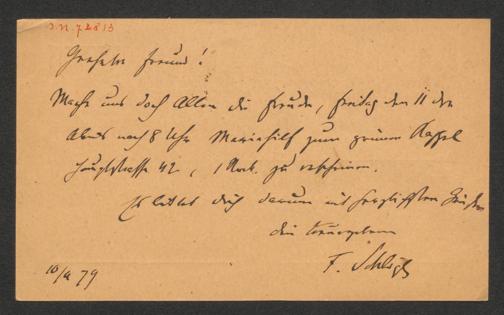 I.N. 72813
Geehrter Freund!
Mache uns doch Allen die Freude, Freitag den 11 der
Abends nach 8 Uhr Mariahilf zum grünen
Hauptstrasse 42, 1 Stock. zu erscheinen.
Es bittet Dich darum mit herzlichsten
dein
F.
10/ 79